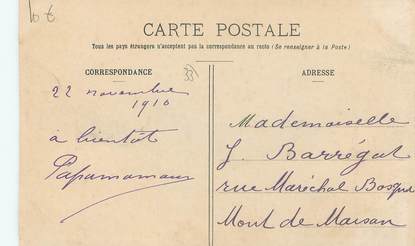 10 €
CARTE POSTALE
Tous les pays étrangers n'acceptent pas la correspondance au recto (Se renseigner à la Poste)
CORRESPONDANCE
33
ADRESSE
22 novembre
1910
à bientôt
Papamaman
Mademoiselle
J. Barrégat
rue Maréchal Bosquet
Mont de Marsan